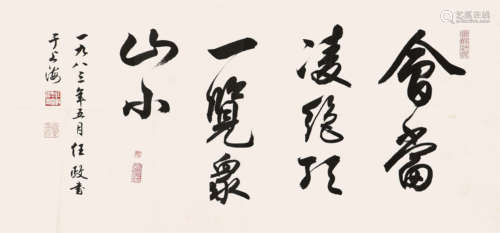 會當
凌絕頂
一覽衆
山小
一九八三年五月任政書
于上海